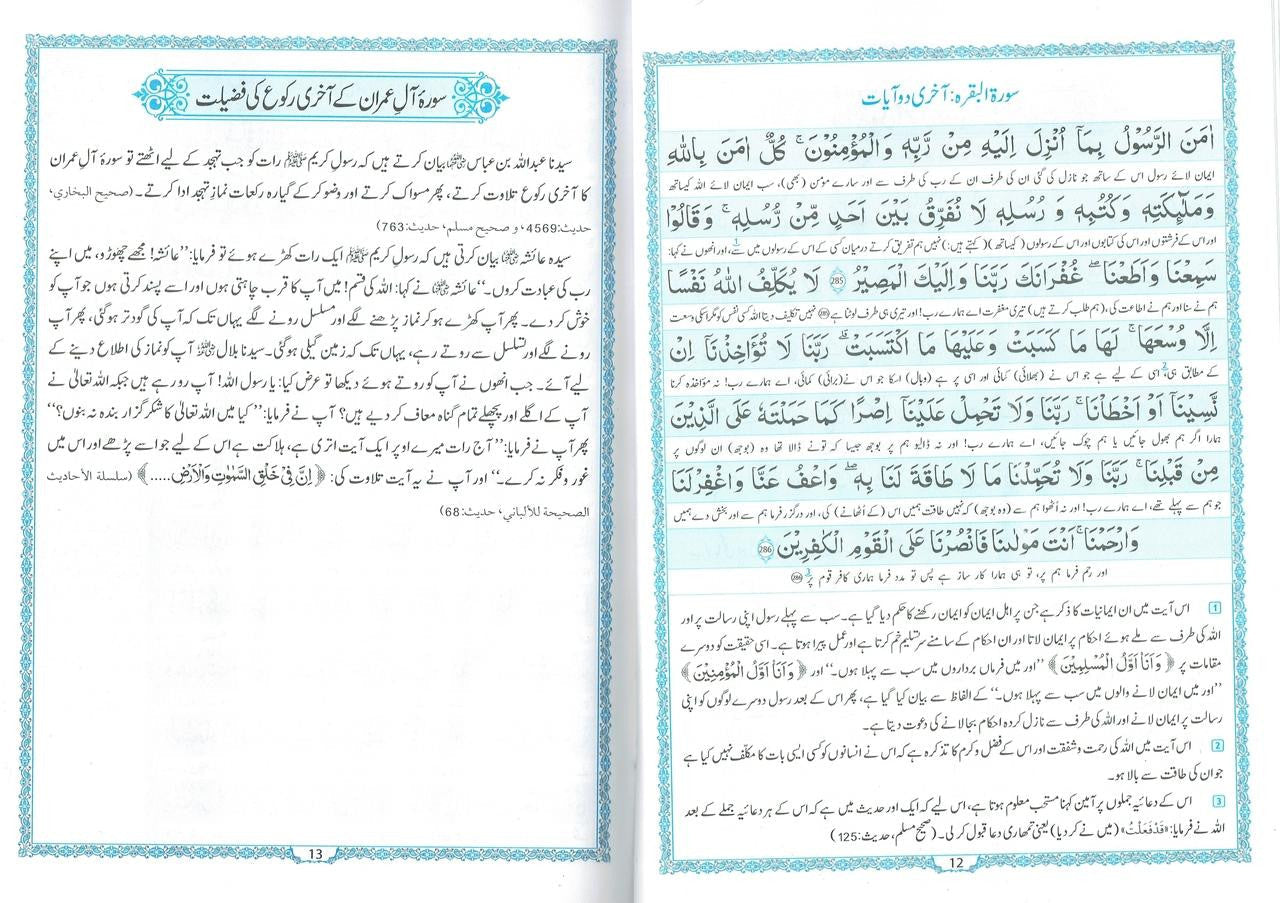 سورۃ البقرہ: آخری دو آیات
اٰمَنَ الرَّسُوْلُ بِمَاۤ اُنْزِلَ اِلَيْهِ مِنْ رَّبِّهٖ وَالْمُؤْمِنُوْنَ ؕ كُلٌّ اٰمَنَ بِاللّٰهِ
ایمان لائے رسول اس کے ساتھ جو نازل کی گئی ان کی طرف ان کے رب کی طرف سے اور سارے مؤمن (بھی)، سب ایمان لائے اللہ کیساتھ
وَمَلٰٓئِكَتِهٖ وَكُتُبِهٖ وَ رُسُلِهٖ لَا نُفَرِّقُ بَيْنَ اَحَدٍ مِّنْ رُّسُلِهٖ ۚ وَقَالُوْا
اور اس کے فرشتوں اور اس کی کتابوں اور اس کے رسولوں (کیساتھ) (کہتے ہیں:) نہیں ہم تفریق کرتے درمیان کسی کے اس کے رسولوں میں سے، اور انھوں نے کہا: 1
سَمِعْنَا وَاَطَعْنَا ۖ غُفْرَانَكَ رَبَّنَا وَاِلَيْكَ الْمَصِيْرُ 285 لَا يُكَلِّفُ اللّٰهُ نَفْسًا
ہم نے سنا اور ہم نے اطاعت کی، (ہم طلب کرتے ہیں) تیری مغفرت اے ہمارے رب! اور تیری ہی طرف لوٹنا ہے 285 نہیں تکلیف دیتا اللہ کسی نفس کو مگر اسکی وسعت
اِلَّا وُسْعَهَا ؕ لَهَا مَا كَسَبَتْ وَعَلَيْهَا مَا اكْتَسَبَتْ ؕ رَبَّنَا لَا تُؤَاخِذْنَاۤ اِنْ
کے مطابق ہی، 2 اسی کے لیے ہے جو اس نے (بھلائی) کمائی اور اسی پر ہے (وبال) اسکا جو اس نے (برائی) کمائی، اے ہمارے رب! نہ مؤاخذہ کرنا
نَّسِيْنَاۤ اَوْ اَخْطَاْنَا ۚ رَبَّنَا وَلَا تَحْمِلْ عَلَيْنَاۤ اِصْرًا كَمَا حَمَلْتَهٗ عَلَى الَّذِيْنَ
ہمارا اگر ہم بھول جائیں یا ہم چوک جائیں، اے ہمارے رب! اور نہ ڈالیو ہم پر بوجھ جیسا کہ تونے ڈالا تھا وہ (بوجھ) ان لوگوں پر
مِنْ قَبْلِنَا ۚ رَبَّنَا وَلَا تُحَمِّلْنَا مَا لَا طَاقَةَ لَنَا بِهٖ ۚ وَاعْفُ عَنَّا وَاغْفِرْلَنَا
جو ہم سے پہلے تھے، اے ہمارے رب! اور نہ اُٹھوا ہم سے (وہ بوجھ) کہ نہیں طاقت ہمیں اس (کے اُٹھانے) کی، اور درگزر فرما ہم سے اور بخش دے ہمیں
وَارْحَمْنَا ۚ اَنْتَ مَوْلٰىنَا فَانْصُرْنَا عَلَى الْقَوْمِ الْكٰفِرِيْنَ 286
اور رحم فرما ہم پر، تو ہی ہمارا کار ساز ہے پس تو مدد فرما ہماری کافر قوم پر 3 286
1 اس آیت میں ان ایمانیات کا ذکر ہے جن پر اہل ایمان کو ایمان رکھنے کا حکم دیا گیا ہے۔ سب سے پہلے رسول اپنی رسالت پر اور
اللہ کی طرف سے ملے ہوئے احکام پر ایمان لاتا اور ان احکام کے سامنے سر تسلیم خم کرتا ہے اور عمل پیرا ہوتا ہے۔ اسی حقیقت کو دوسرے
مقامات پر ﴿وَاَنَا اَوَّلُ الْمُسْلِمِيْنَ﴾ ”اور میں فرماں برداروں میں سب سے پہلا ہوں۔“ اور ﴿وَاَنَا اَوَّلُ الْمُؤْمِنِيْنَ﴾
”اور میں ایمان لانے والوں میں سب سے پہلا ہوں۔“ کے الفاظ سے بیان کیا گیا ہے، پھر اس کے بعد رسول دوسرے لوگوں کو اپنی
رسالت پر ایمان لانے اور اللہ کی طرف سے نازل کردہ احکام بجا لانے کی دعوت دیتا ہے۔
2 اس آیت میں اللہ کی رحمت و شفقت اور اس کے فضل و کرم کا تذکرہ ہے کہ اس نے انسانوں کو کسی ایسی بات کا مکلف نہیں کیا ہے
جو ان کی طاقت سے بالا ہو۔
3 اس کے دعائیہ جملوں پر آمین کہنا مستحب معلوم ہوتا ہے، اس لیے کہ ایک اور حدیث میں ہے کہ اس کے ہر دعائیہ جملے کے بعد
اللہ نے فرمایا: «قَدْ فَعَلْتُ» (میں نے کر دیا) یعنی تمھاری دعا قبول کر لی۔ (صحیح مسلم، حدیث: 125)
12
سورۂ آلِ عمران کے آخری رکوع کی فضیلت
سیدنا عبداللہ بن عباس رضی اللہ عنہما بیان کرتے ہیں کہ رسولِ کریم ﷺ رات کو جب تہجد کے لیے اٹھتے تو سورۂ آلِ عمران
کا آخری رکوع تلاوت کرتے، پھر مسواک کرتے اور وضو کر کے گیارہ رکعات نمازِ تہجد ادا کرتے۔ (صحیح البخاري،
حدیث: 4569، و صحیح مسلم، حدیث: 763)
سیدہ عائشہ رضی اللہ عنہا بیان کرتی ہیں کہ رسولِ کریم ﷺ ایک رات کھڑے ہوئے تو فرمایا: ”عائشہ! مجھے چھوڑو، میں اپنے
رب کی عبادت کروں۔“ عائشہ رضی اللہ عنہا نے کہا: اللہ کی قسم! میں آپ کا قرب چاہتی ہوں اور اسے پسند کرتی ہوں جو آپ کو
خوش کر دے۔ پھر آپ کھڑے ہو کر نماز پڑھنے لگے اور مسلسل رونے لگے یہاں تک کہ آپ کی گود تر ہو گئی، پھر آپ
رونے لگے اور تسلسل سے روتے رہے، یہاں تک کہ زمین گیلی ہو گئی۔ سیدنا بلال رضی اللہ عنہ آپ کو نماز کی اطلاع دینے کے
لیے آئے۔ جب انھوں نے آپ کو روتے ہوئے دیکھا تو عرض کیا: یا رسول اللہ! آپ رو رہے ہیں جبکہ اللہ تعالیٰ نے
آپ کے اگلے اور پچھلے تمام گناہ معاف کر دیے ہیں؟ آپ نے فرمایا: ”کیا میں اللہ تعالیٰ کا شکر گزار بندہ نہ بنوں؟“
پھر آپ نے فرمایا: ”آج رات میرے اوپر ایک آیت اتری ہے، ہلاکت ہے اس کے لیے جو اسے پڑھے اور اس میں
غور و فکر نہ کرے۔“ اور آپ نے یہ آیت تلاوت کی: ﴿اِنَّ فِيْ خَلْقِ السَّمٰوٰتِ وَالْاَرْضِ.....﴾ (سلسلة الأحاديث
الصحيحة للألباني، حدیث: 68)
13